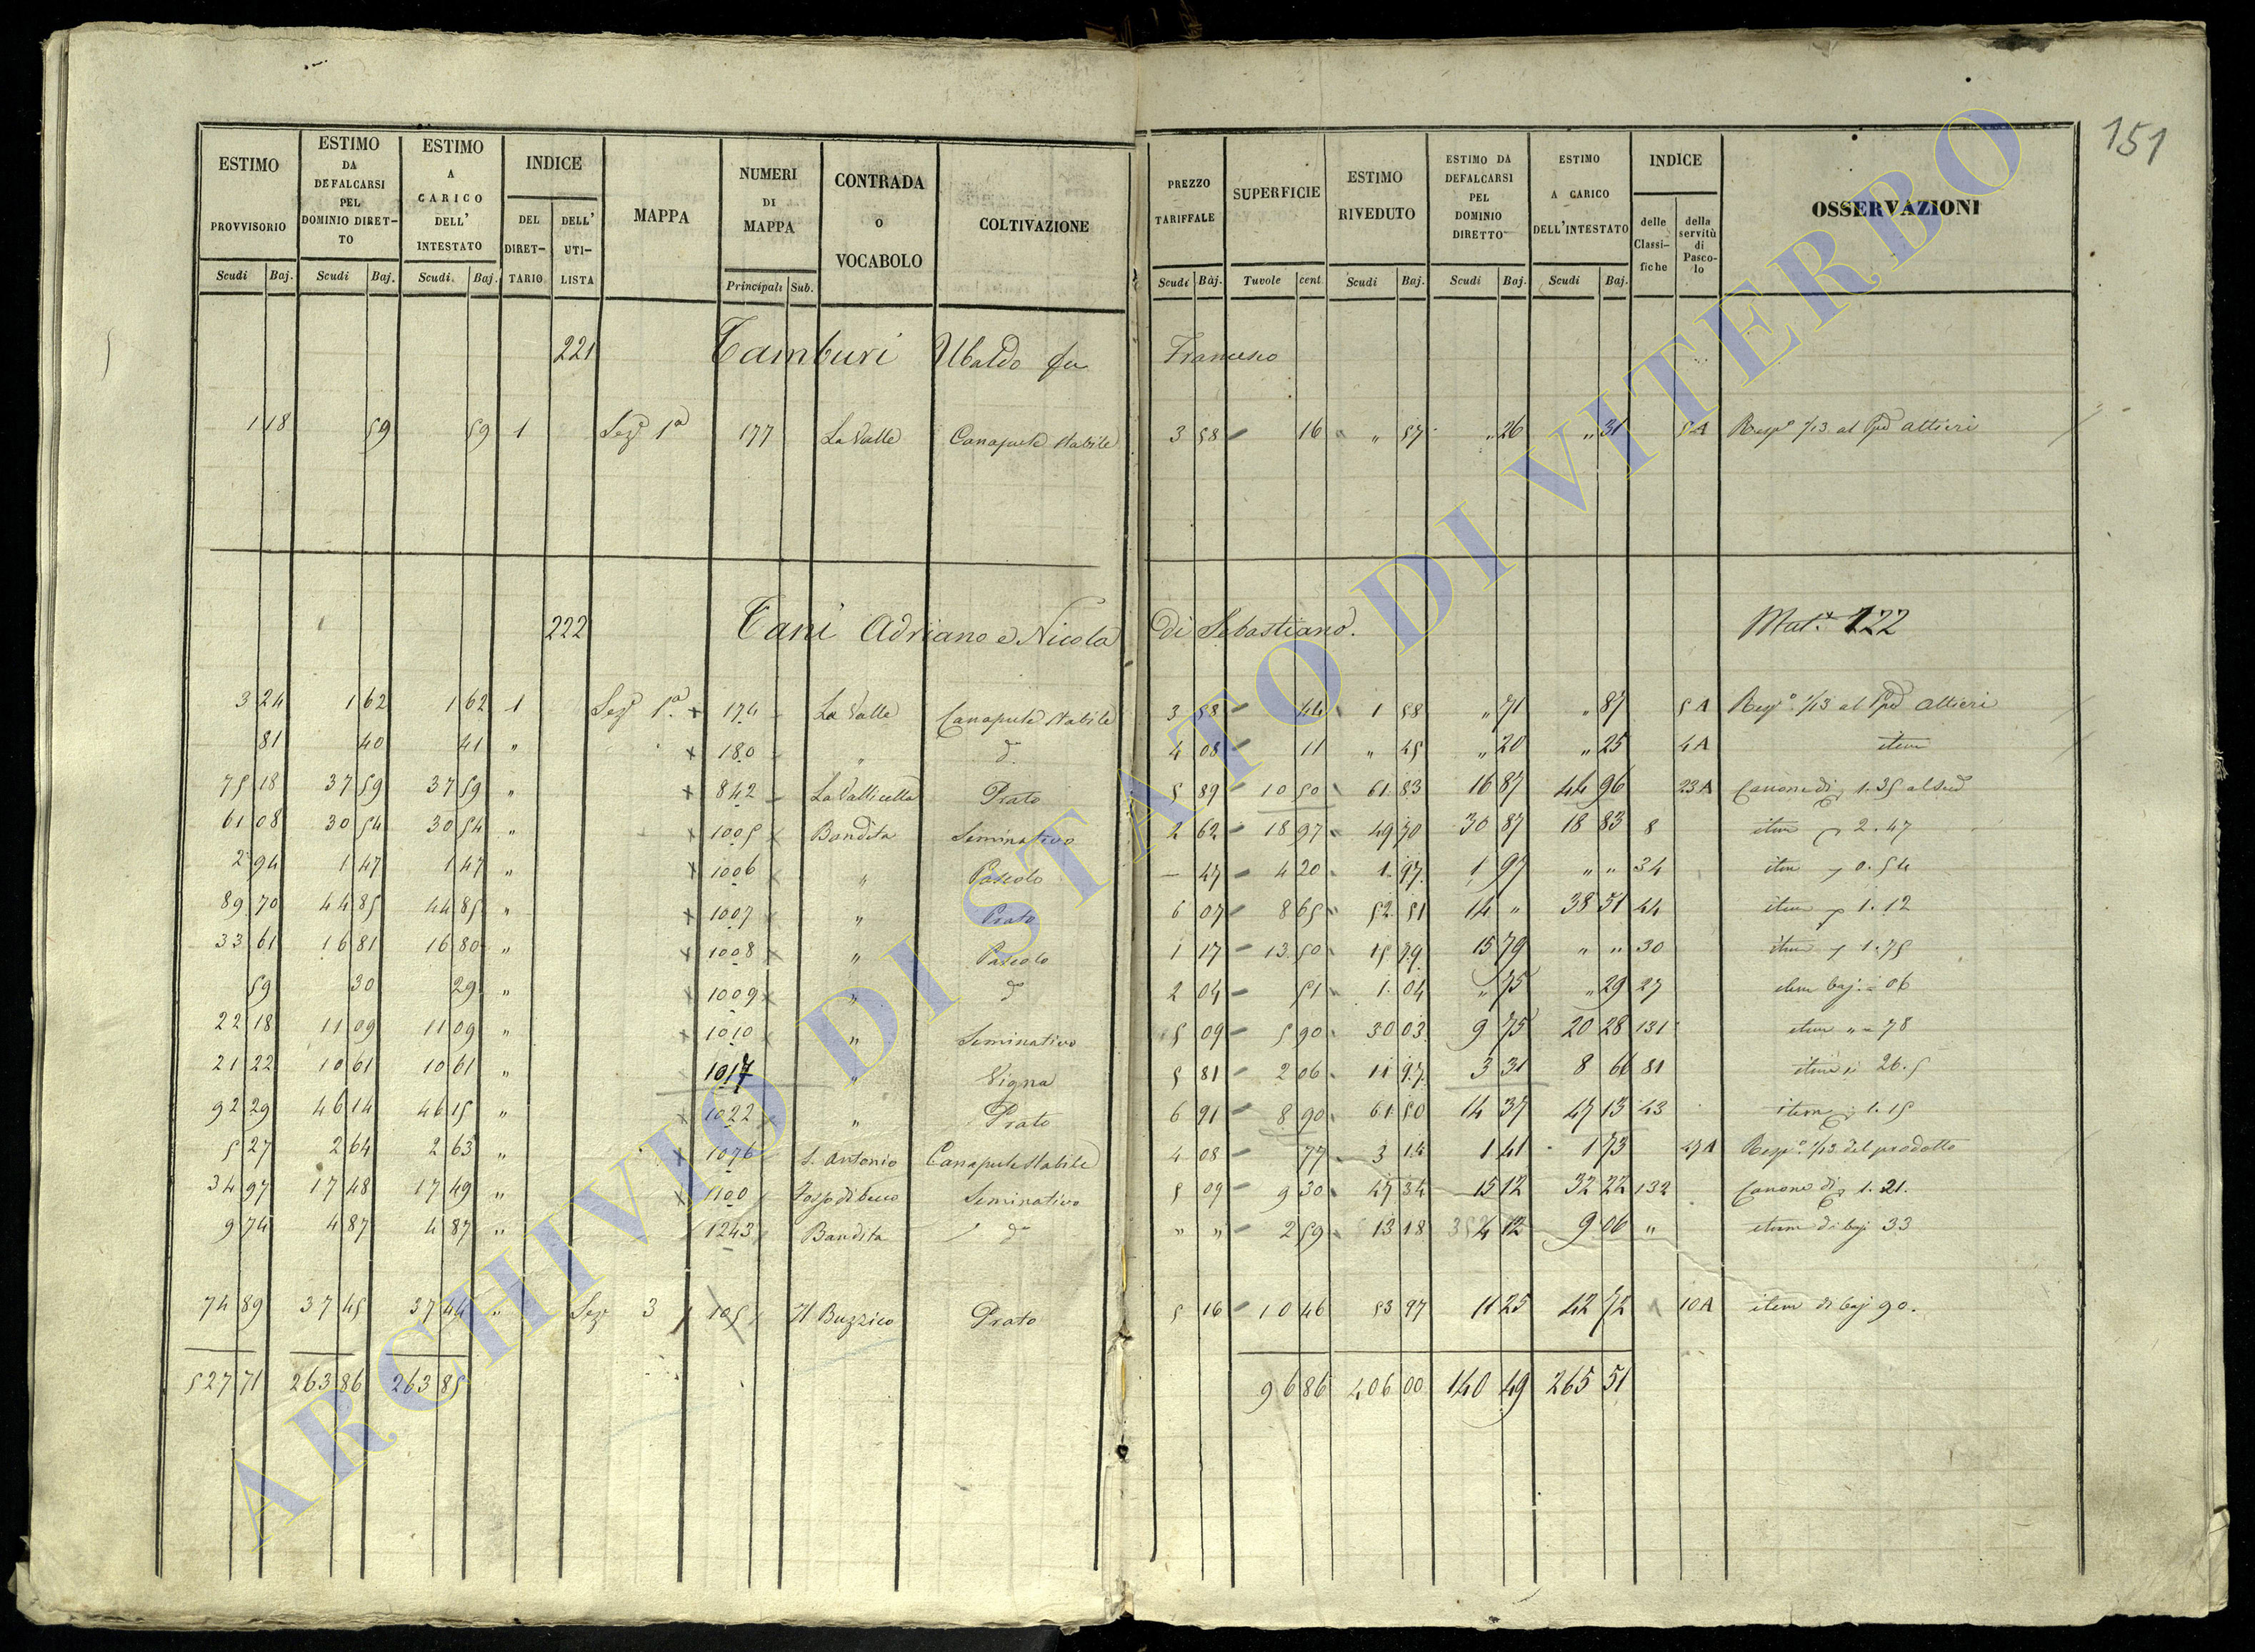 151
ESTIMO PROVVISORIO
ESTIMO DA DEFALCARSI PEL DOMINIO DIRET-TO
ESTIMO A CARICO DELL' INTESTATO
INDICE
DEL DIRET-TARIO
DELL' UTI-LISTA
MAPPA
NUMERI DI MAPPA
CONTRADA O VOCABOLO
COLTIVAZIONE
PREZZO TARIFFALE
SUPERFICIE
ESTIMO RIVEDUTO
ESTIMO DA DEFALCARSI PEL DOMINIO DIRETTO
ESTIMO A CARICO DELL'INTESTATO
INDICE
delle Classi-fiche
della servitù di Pasco-lo
OSSERVAZIONI
Scudi Baj. Scudi Baj. Scudi. Baj. Principali Sub. Scudi Baj. Tavole cent Scudi Baj. Scudi Baj. Scudi Baj.
221 Tamburi Ubaldo fu Francesco
1 18 59 59 1 Sez.e 1a 177 La Valle Canapule stabile 3 58 16 " 57 " 26 " 31 5A Resp.e 1/13 al Ppe Altieri
222 Tani Adriano e Nicola di Sebastiano. Mat.a 222
3 24 1 62 1 62 1 Sez.e 1a 174 La Valle Canapule stabile 3 58 44 1 58 " 71 " 87 5A Resp.e 1/13 al Ppe Altieri
81 40 41 " 180 " d.o 4 08 11 " 45 " 20 " 25 4A item
75 18 37 59 37 59 " 842 La Vallicella Prato 5 89 10 50 61 83 16 87 44 96 23A Canone di 1.35 al sud
61 08 30 54 30 54 " 1005 Bandita Seminativo 2 62 18 97 49 70 30 87 18 83 8 item 2.47
2 94 1 47 1 47 " 1006 " Pascolo 47 4 20 1 97 1 97 " " 34 item 0.54
89 70 44 85 44 85 " 1007 " Prato 6 07 8 65 52 51 14 " 38 51 44 item 1.12
33 61 16 81 16 80 " 1008 " Pascolo 1 17 13 50 15 79 15 79 " " 30 item 1.75
59 30 29 " 1009 " d.o 2 04 51 1 04 " 75 " 29 27 item baj: 06
22 18 11 09 11 09 " 1010 " Seminativo 5 09 5 90 30 03 9 75 20 28 131 item " 78
21 22 10 61 10 61 " 1017 " Vigna 5 81 2 06 11 97 3 31 8 66 81 item 26.5
92 29 46 14 46 15 " 1022 " Prato 6 91 8 90 61 50 14 37 47 13 43 item 1.15
5 27 2 64 2 63 " 1076 S. Antonio Canapule stabile 4 08 77 3 14 1 41 1 73 47A Resp.e 1/13 del prodotto
34 97 17 48 17 49 " 1100 Fosso di becco Seminativo 5 09 9 30 47 34 15 12 32 22 132 Canone di 1.21.
9 74 4 87 4 87 " 1243 Bandita d.o " " 2 59 13 18 4 12 9 06 " item di baj 33
74 89 37 45 37 44 " Sez.e 3 105 Il Buzzico Prato 5 16 10 46 53 97 11 25 42 72 10A item di baj 90.
527 71 263 86 263 85 96 86 406 00 140 49 265 51
ARCHIVIO DI STATO DI VITERBO